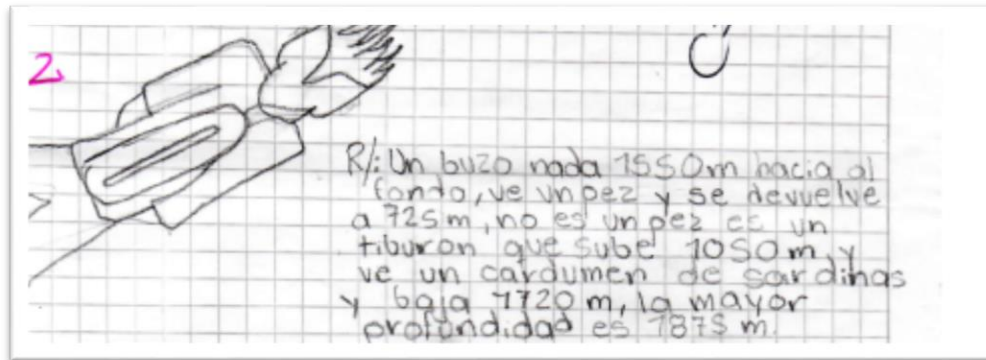 2.
R/: Un buzo nada 1550m hacia al
fondo, ve un pez y se devuelve
a 725m, no es un pez es un
tiburon que sube 1050m, y
ve un cardumen de sardinas
y baja 1720 m, la mayor
profundidad es 1875 m.